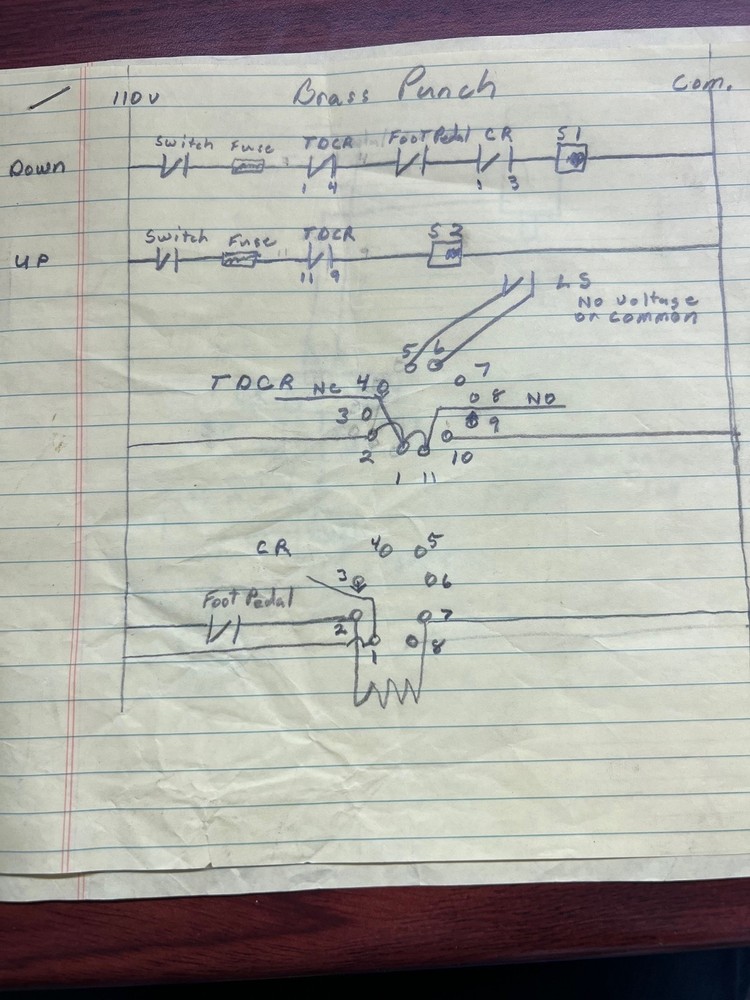 110V Brass Punch Com.
Switch Fuse TDCR Foot Pedal CR S1
Down
1 4 1 3
Switch Fuse TDCR S2
UP
11 9
LS
No Voltage
or Common
5 6 7
TDCR NC 4 8 NO
3 9
2 10
1 11
CR 4 5
3 6
Foot Pedal
2 7
1 8